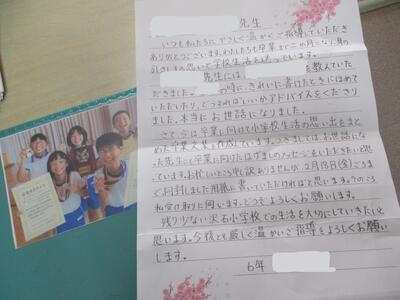 先生
いつも私たちにやさしく温かくご指導していただき
ありがとうございます。わたしたちも卒業まで二か月になり、身の
引きしまる思いで学校生活を送っています。
先生には を教えていた
だきました。 の時に、きれいに書けたときにほめて
いただいたり、どうすればいいかアドバイスをくださり
ました。本当にお世話になりました。
さて、今は卒業に向けて小学校生活の思い出をまと
めた卒業文集を作成しています。つきましては、お世話になっ
た先生に、卒業に向けたはげましのメッセージをいただきたいと思
っています。お忙しいところ申し訳ありませんが、2月18日(金)ごろま
でに同封しました用紙に書いていただければと思います。そのころ
私が受け取りに伺います。どうぞよろしくお願いします。
残り少ない沢石小学校での生活を大切にしていきたいと
思います。今後とも厳しく温かいご指導をよろしくお願い
します。
6年